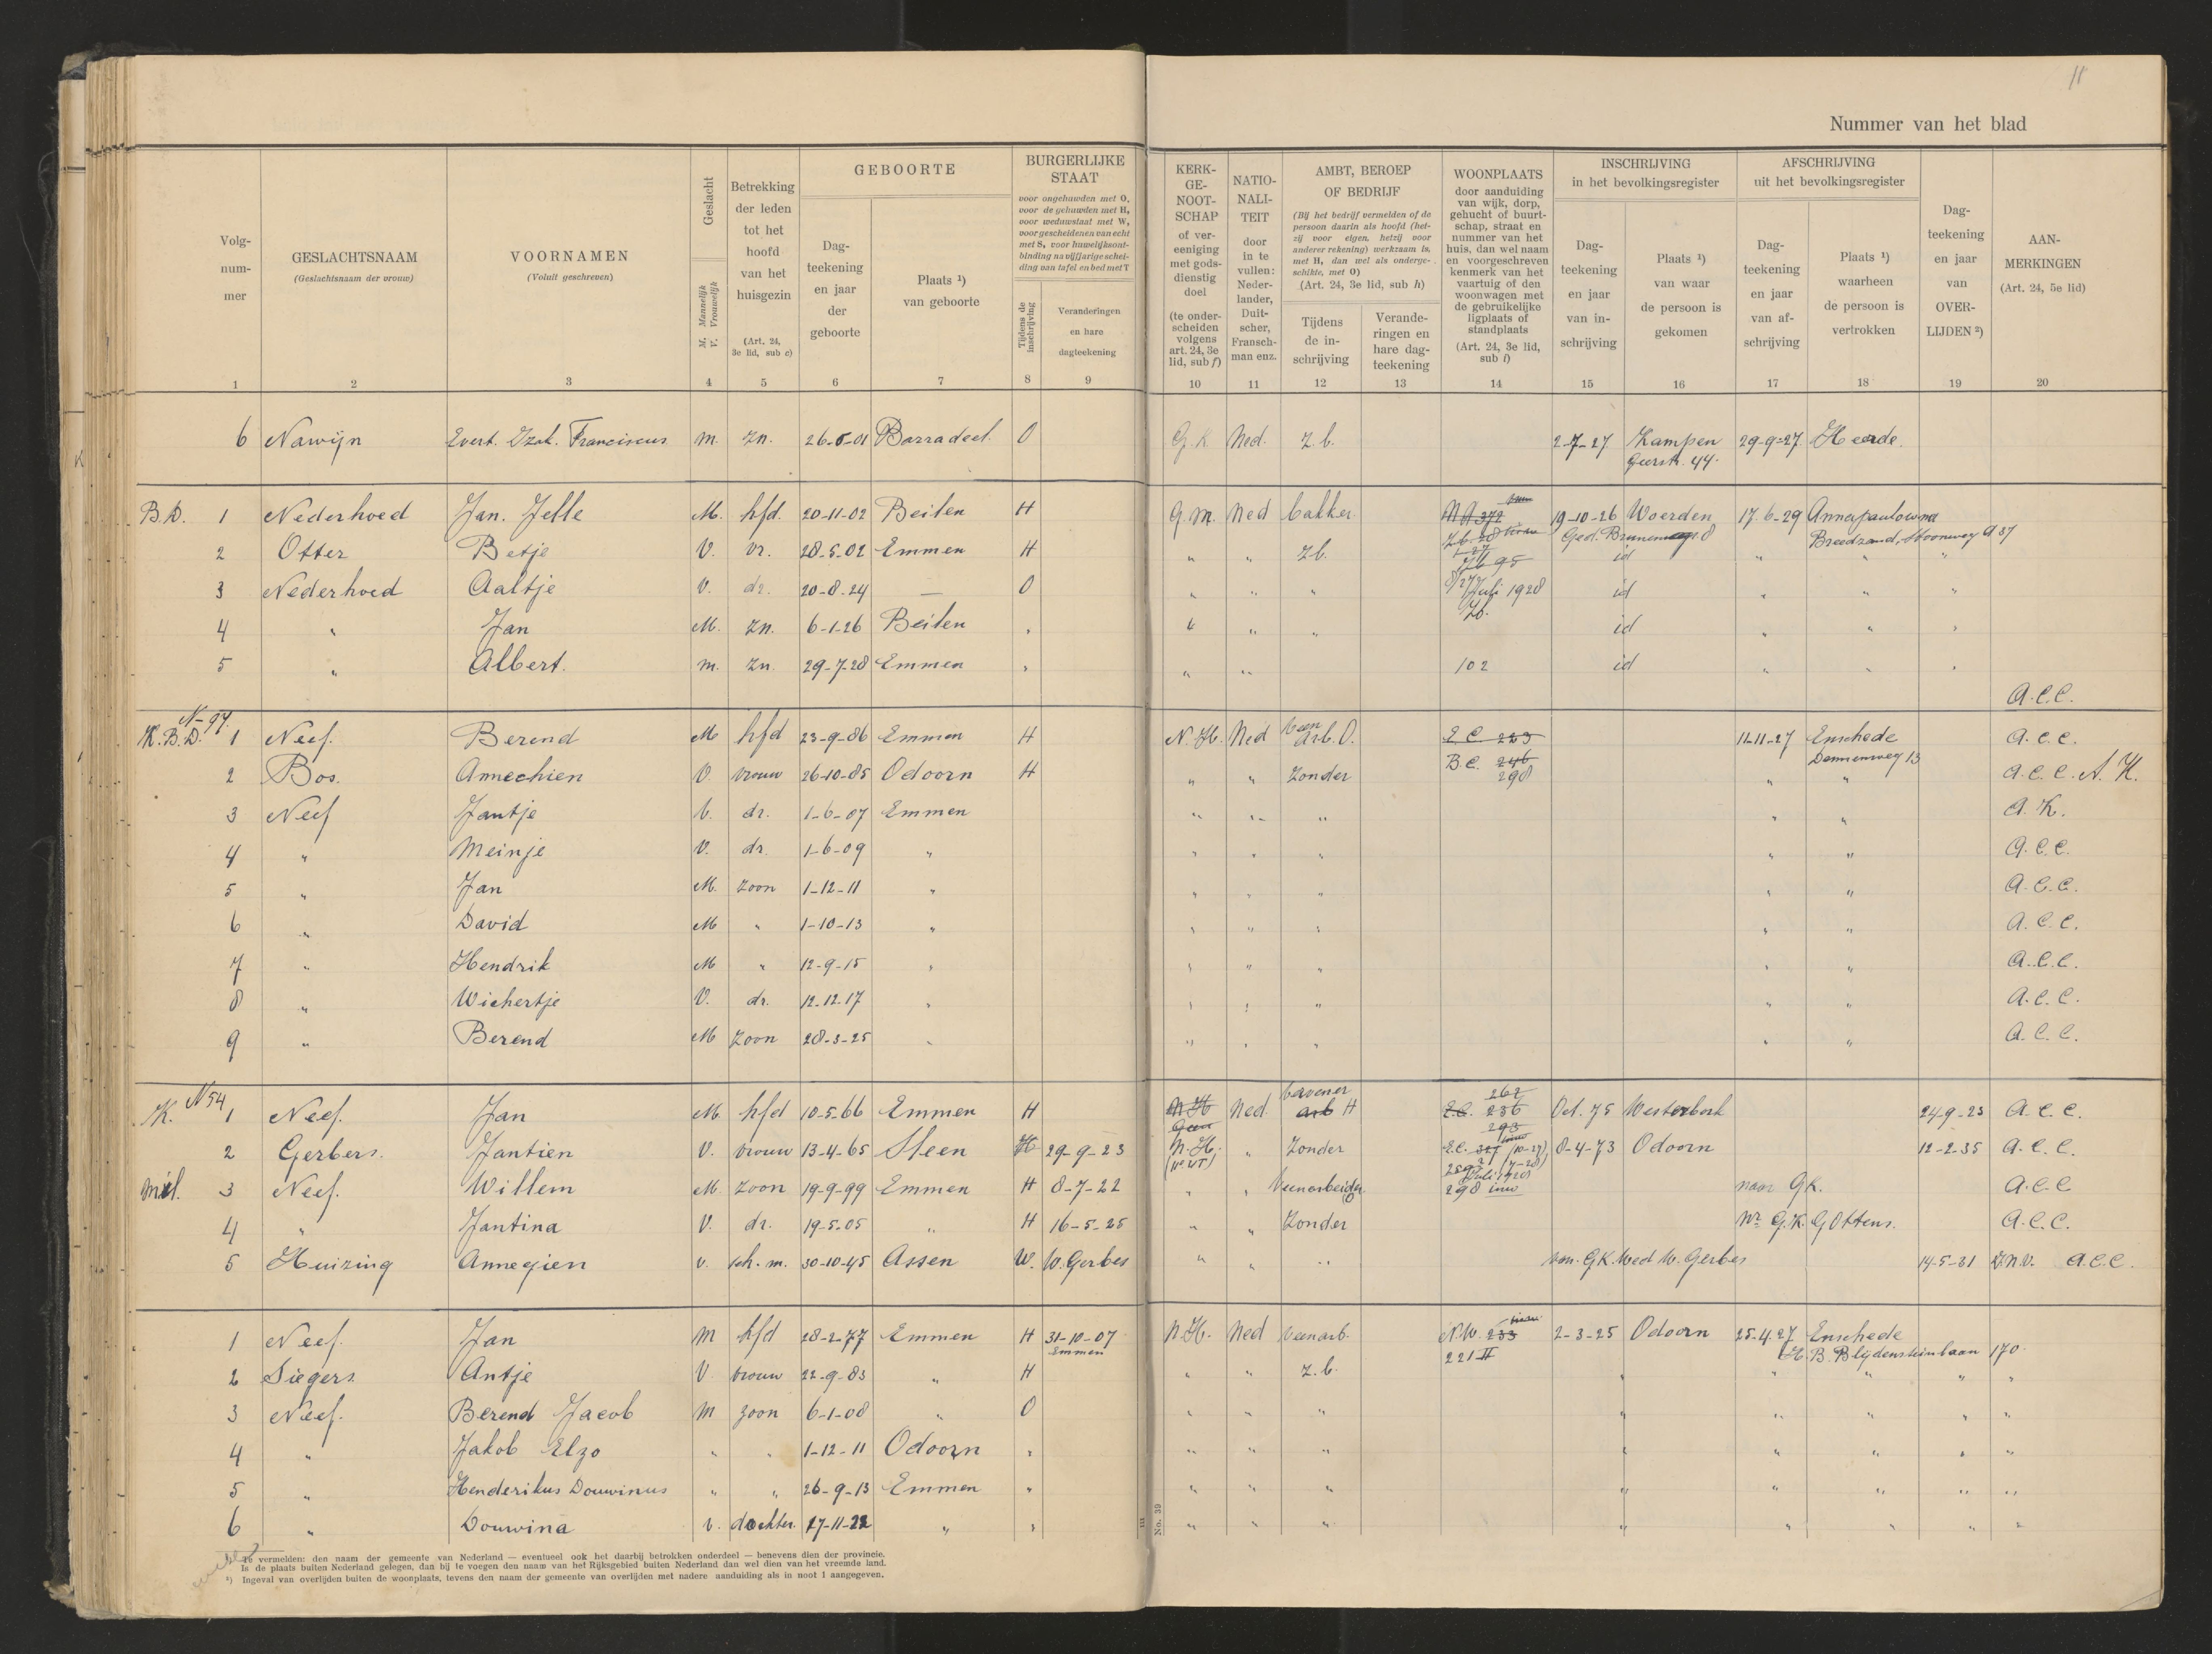 11
Nummer van het blad
Volg-
num-
mer
GESLACHTSNAAM
(Geslachtsnaam der vrouw)
VOORNAMEN
(Voluit geschreven)
Geslacht
M. Mannelijk
V. Vrouwelijk
Betrekking
der leden
tot het
hoofd
van het
huisgezin
(Art. 24,
3e lid, sub c)
GEBOORTE
Dag-
teekening
en jaar
der
geboorte
Plaats ¹)
van geboorte
BURGERLIJKE
STAAT
voor ongehuwden met O,
voor de gehuwden met H,
voor weduwstaat met W,
voor gescheidenen van echt
met S, voor huwelijksont-
binding na vijfjarige schei-
ding van tafel en bed met T
Tijdens de
inschrijving
Veranderingen
en hare
dagteekening
KERK-
GE-
NOOT-
SCHAP
of ver-
eeniging
met gods-
dienstig
doel
(te onder-
scheiden
volgens
art. 24, 3e
lid, sub f)
NATIO-
NALI-
TEIT
door
in te
vullen:
Neder-
lander,
Duit-
scher,
Fransch-
man enz.
AMBT, BEROEP
OF BEDRIJF
(Bij het bedrijf vermelden of de
persoon daarin als hoofd (het-
zij voor eigen, hetzij voor
anderer rekening) werkzaam is,
met H, dan wel als onderge-
schikte, met O)
(Art. 24, 3e lid, sub h)
Tijdens
de in-
schrijving
Verande-
ringen en
hare dag-
teekening
WOONPLAATS
door aanduiding
van wijk, dorp,
gehucht of buurt-
schap, straat en
nummer van het
huis, dan wel naam
en voorgeschreven
kenmerk van het
vaartuig of den
woonwagen met
de gebruikelijke
ligplaats of
standplaats
(Art. 24, 3e lid,
sub i)
INSCHRIJVING
in het bevolkingsregister
Dag-
teekening
en jaar
van in-
schrijving
Plaats ¹)
van waar
de persoon is
gekomen
AFSCHRIJVING
uit het bevolkingsregister
Dag-
teekening
en jaar
van af-
schrijving
Plaats ¹)
waarheen
de persoon is
vertrokken
Dag-
teekening
en jaar
van
OVER-
LIJDEN ²)
AAN-
MERKINGEN
(Art. 24, 5e lid)
1 2 3 4 5 6 7 8 9 10 11 12 13 14 15 16 17 18 19 20
6 Nawijn Evert. Izak. Franciscus m. zn. 26-5-01 Barradeel. O G.K Ned. z.b. 2-7-27 Kampen 29-9-27. Heerde.
Geerstr. 44.
B.D. 1 Nederhoed Jan. Jelle M. hfd. 20-11-02 Beilen H G.M. Ned bakker 19-10-26 Woerden 17-6-29 Annapaulowna
2 Otter Betje V. vr. 28-5-02 Emmen H " " zb. id " " "
Breedzand, Stoomweg A 37
3 Nederhoed Aaltje V. dr. 20-8-24 — O " " " Juli 1928 id " " "
4 " Jan M. zn. 6-1-26 Beilen " " " " Zb. id " " "
5 " Albert. m. zn. 29-7-28 Emmen " " " 102 id " " "
A.C.C.
N-97.
K.B.D. 1 Neef. Berend M hfd 23-9-86 Emmen H N.H. Ned Veen arb. O. E.C. 223 11-11-27 Enschede A.C.C.
Dennenweg 13
2 Bos. Annechien V. vrouw 26-10-85 Odoorn H " " Zonder B.C. 246 " " A.C.C. A.K.
298
3 Neef Jantje V. dr. 1-6-07 Emmen " " " " " A.K.
4 " Meinje V. dr. 1-6-09 " " " " " " A.C.C.
5 " Jan M. zoon 1-12-11 " " " " " " A.C.C.
6 " David M " 1-10-13 " " " " " " A.C.C.
7 " Hendrik M " 12-9-15 " " " " " " A.C.C.
8 " Wichertje V. dr. 12-12-17 " " " " " " A.C.C.
9 " Berend M zoon 28-3-25 " " " " " " A.C.C.
N 54
K. 1 Neef. Jan M. hfd 10-5-66 Emmen H N.H Ned. arb H E.C. 236 Oct. 75 Westerbork 24-9-23 A.C.C.
262
293
2 Gerbers. Jantien V. vrouw 13-4-65 Sleen H 29-9-23 N.H. " Zonder E.C. 327 (10-27) 8-4-73 Odoorn 12-2-35 A.C.C.
Juli 1928
mil. 3 Neef. Willem M. zoon 19-9-99 Emmen H 8-7-22 " " Veenarbeider O 298 inw naar GK. A.C.C
4 " Jantina V. dr. 19-5-05 " H 16-5-25 " " Zonder Nr G.K. G Ottens. A.C.C.
5 Huizing Annegien v. sch. m. 30-10-45 Assen W. W. Gerbes " " " van GK. Wed W. Gerbes 14-5-31 A.C.C.
1 Neef. Jan M hfd 28-2-77 Emmen H 31-10-07 N.H. Ned veenarb. N.W. 233 2-3-25 Odoorn 25-4-27 Enschede
Emmen
221 II
H.B. Blijdensteinlaan 170.
2 Siegers Antje V. vrouw 22-9-83 " H " " z.b. " " " " "
3 Neef. Berend Jacob M zoon 6-1-08 " O " " " " " " " "
4 " Jakob Elzo " " 1-12-11 Odoorn " " " " " " " " "
5 " Henderikus Douwinus " " 26-9-13 Emmen " " " " " " " " "
6 " Douwina v. dochter. 27-11-22 " " " " " " " " " "
No. 39
Te vermelden: den naam der gemeente van Nederland — eventueel ook het daarbij betrokken onderdeel — benevens dien der provincie.
Is de plaats buiten Nederland gelegen, dan bij te voegen den naam van het Rijksgebied buiten Nederland dan wel dien van het vreemde land.
²) Ingeval van overlijden buiten de woonplaats, tevens den naam der gemeente van overlijden met nadere aanduiding als in noot 1 aangegeven.